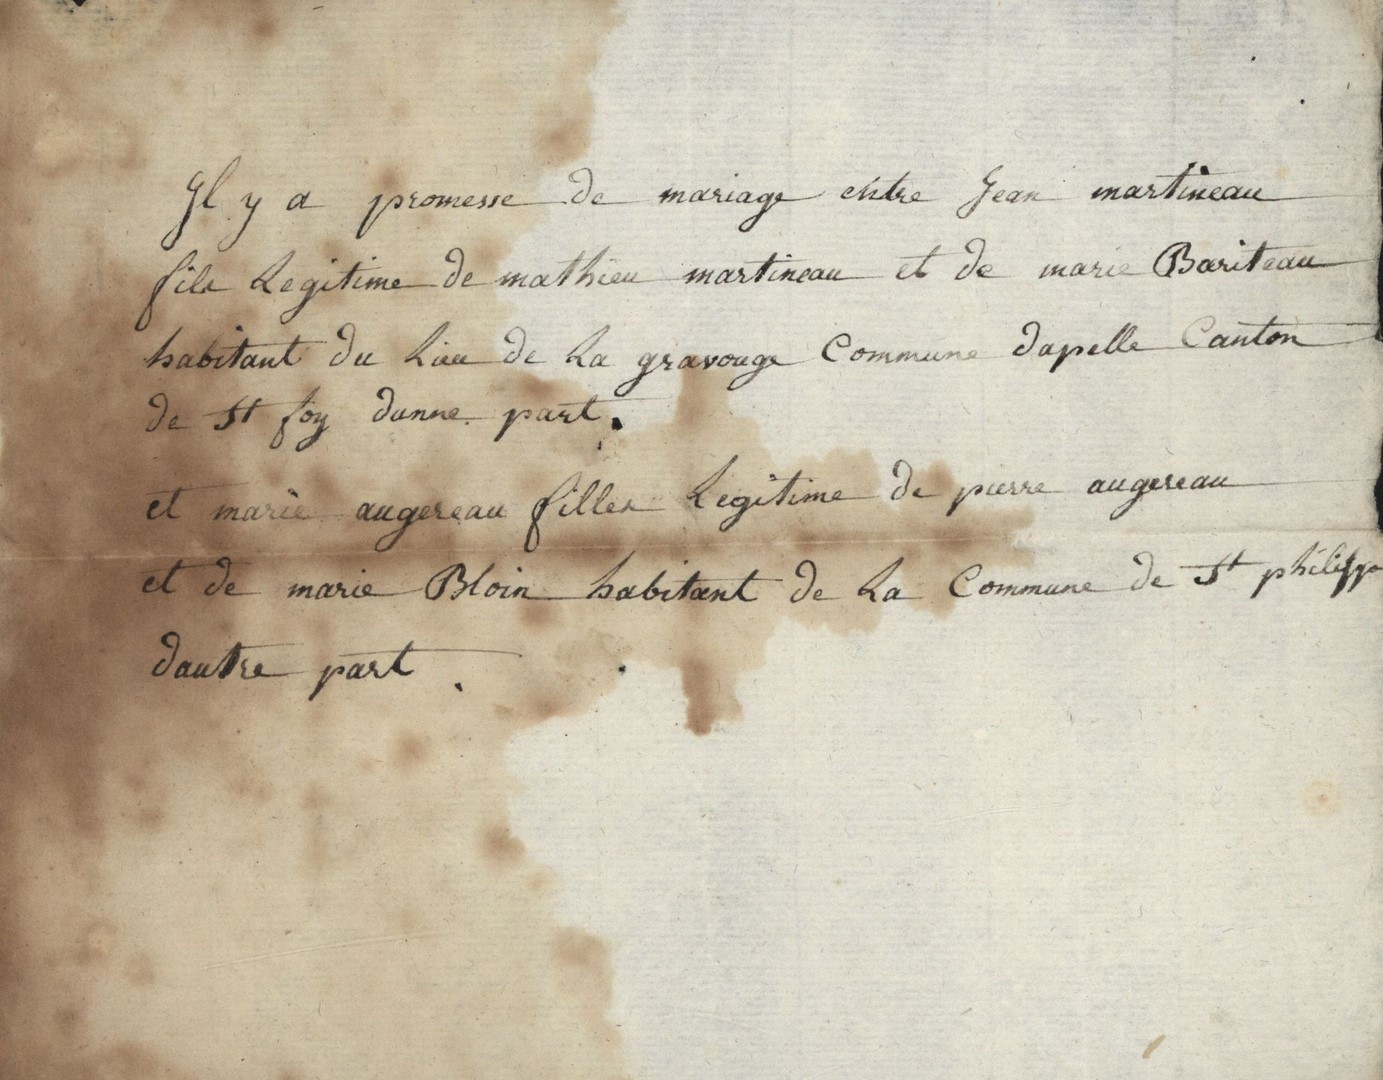 Il y a promesse de mariage entre Jean martineau
fils Legitime de mathieu martineau et de marie Bariteau
habitant du Lieu de La gravouge Commune dapelle Canton
de St foy dunne part.
et marie augereau filles Legitime de pierre augereau
et de marie Bloin habitant de La Commune de St philippe
dautre part.